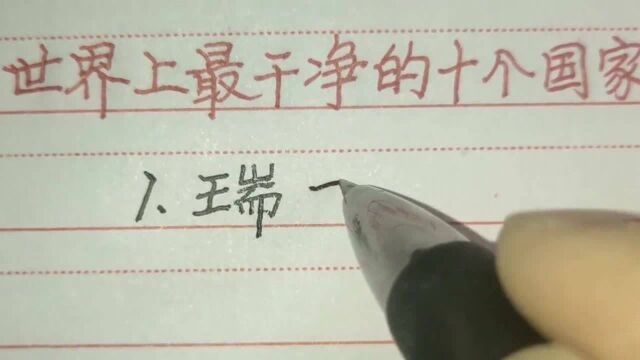 世界上最干净的十个国家
1.瑞